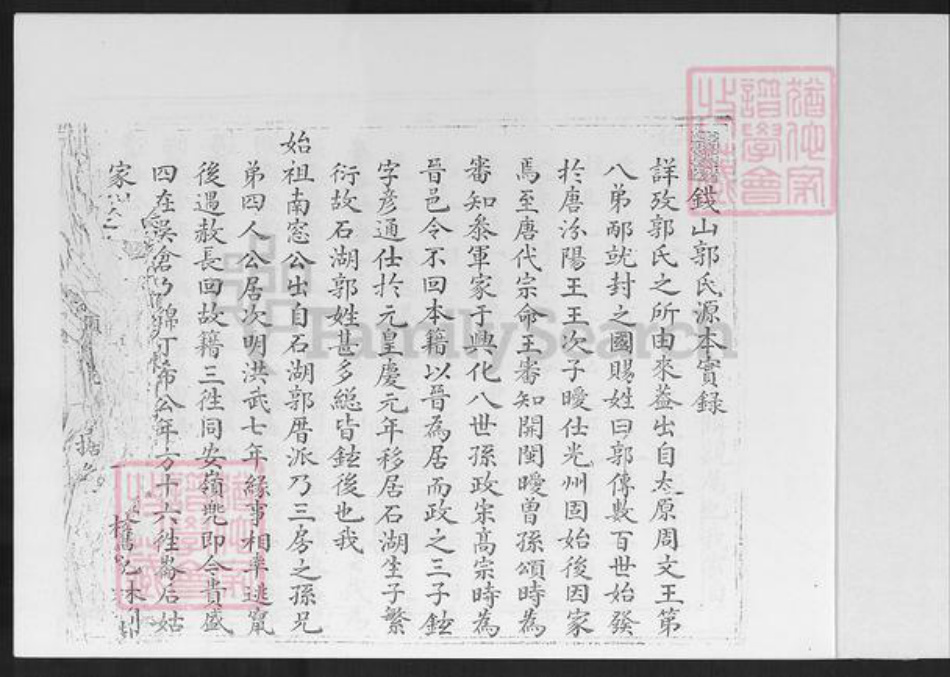 錢山郭氏源本實録
詳攷郭氏之所由來葢出自太原周文王第
八弟邴就封之國賜姓曰郭傳數百世始發
扵唐汾陽王王次子曖仕光州固始後因家
焉至唐代宗命王審知開閩曖曽孫頌時為
審知叅軍家于興化八世孫政宋髙宗時為
晉邑令不回本籍以晉為居而政之三子鉉
字彥通仕扵元皇慶元年移居石湖生子繁
衍故石湖郭姓甚多緫皆鉉後也我
始祖南窓公出自石湖郭厝派乃三房之孫兄
弟四人公居次明洪武七年緣事相率逃竄
後遇赦長回故籍三徃同安嶺兠即今貴盛
四在吳倉乃錦丁布公年方十六徃崙后姑
家
據
舊
譜學會
FamilySearch